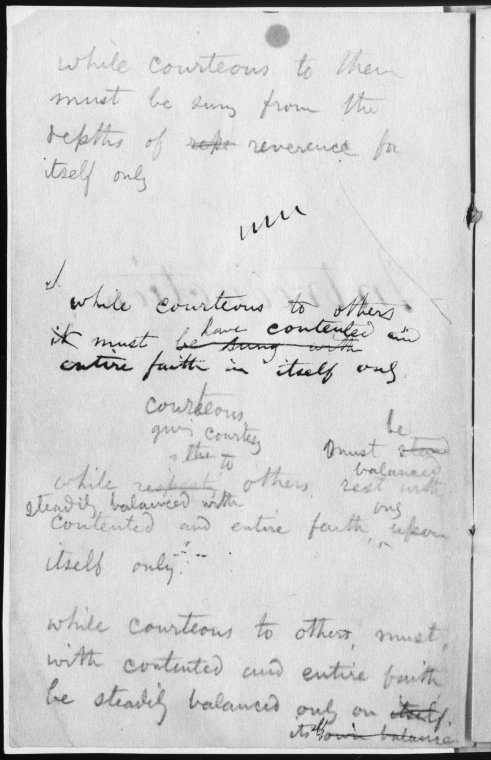 while courteous to them
must be sung from the
depths of reverence for
itself only
while courteous to others
have contented and
it must be sung with
entire faith in itself only
courteous
giving courtesy
be
the to
must
balanced
while respect others, rest with
steadily balanced with
only
contented and entire faith, upon
itself only
while courteous to others, must,
with contented and entire faith
be steadily balanced only on itself.
its own balance